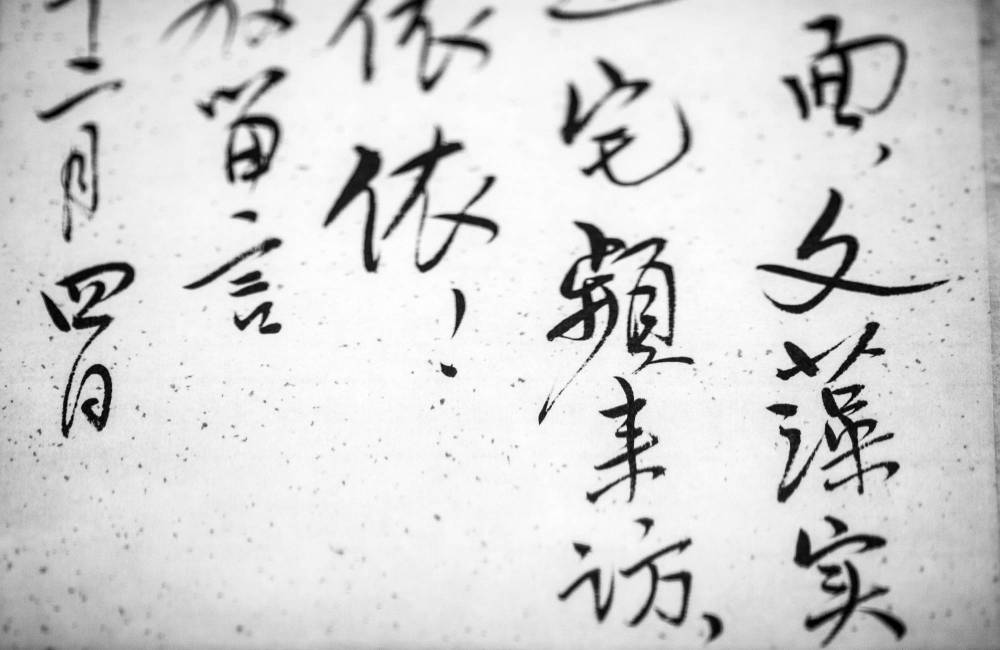 面，文藻实
宅频来访，
依依！
留言
二月四日